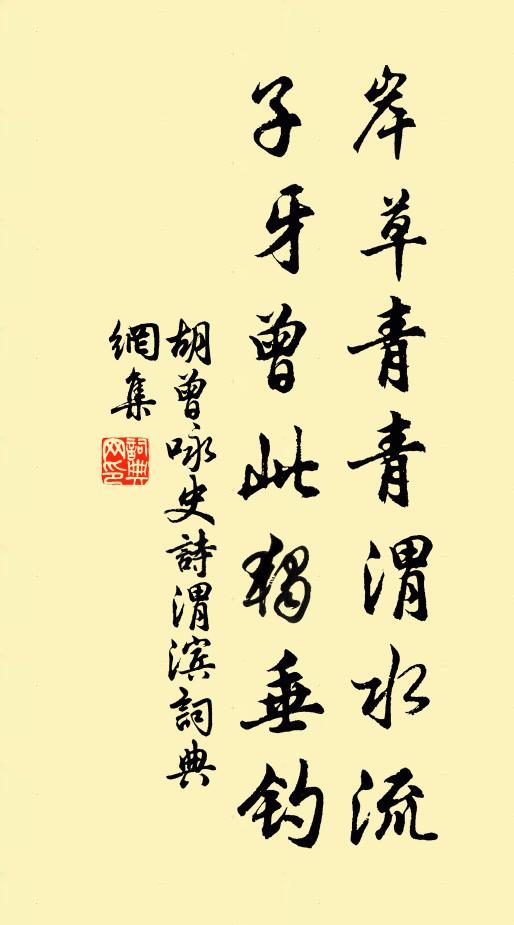 岸草青青渭水流
子牙曾此獨垂釣
胡曾咏史詩渭滨詞典
網集
詞典网印